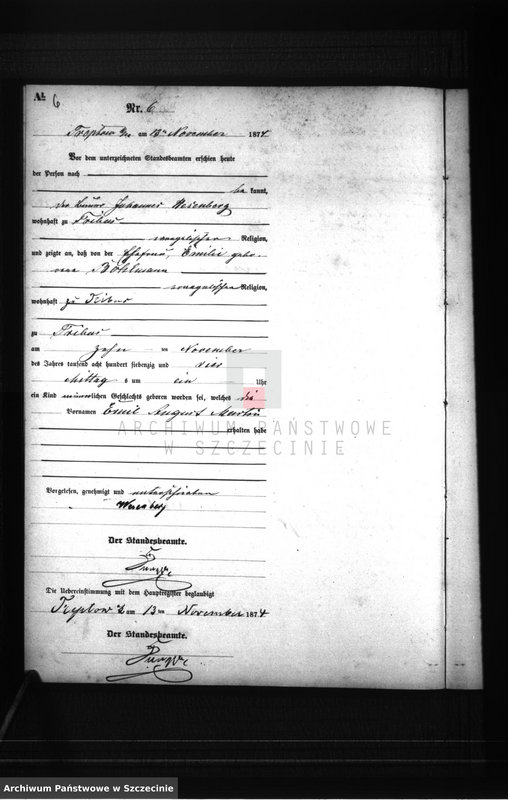 № 6
Nr. 6
Treptow a/R am 13ten November 1874
Vor dem unterzeichneten Standesbeamten erschien heute
der Person nach
be kannt,
der Johannes Wesenberg
wohnhaft zu Tribus
evangelischer Religion,
und zeigte an, daß von der Ehefrau, Emilie gebo-
rene Böhlmann
evangelischer Religion,
wohnhaft zu Tribus
zu Tribus
am zehn ten November
des Jahres tausend acht hundert siebenzig und vier
Mittag s um ein Uhr
ein Kind männlichen Geschlechts geboren worden sei, welches die
Vornamen Emil August Martin
erhalten habe
ARCHIWUM PAŃSTWOWE
W SZCZECINIE
Vorgelesen, genehmigt und unterschrieben
Wesenberg
Der Standesbeamte.
Die Uebereinstimmung mit dem Hauptregister beglaubigt
Treptow a/R am 13 ten November 1874
Der Standesbeamte.
Archiwum Państwowe w Szczecinie